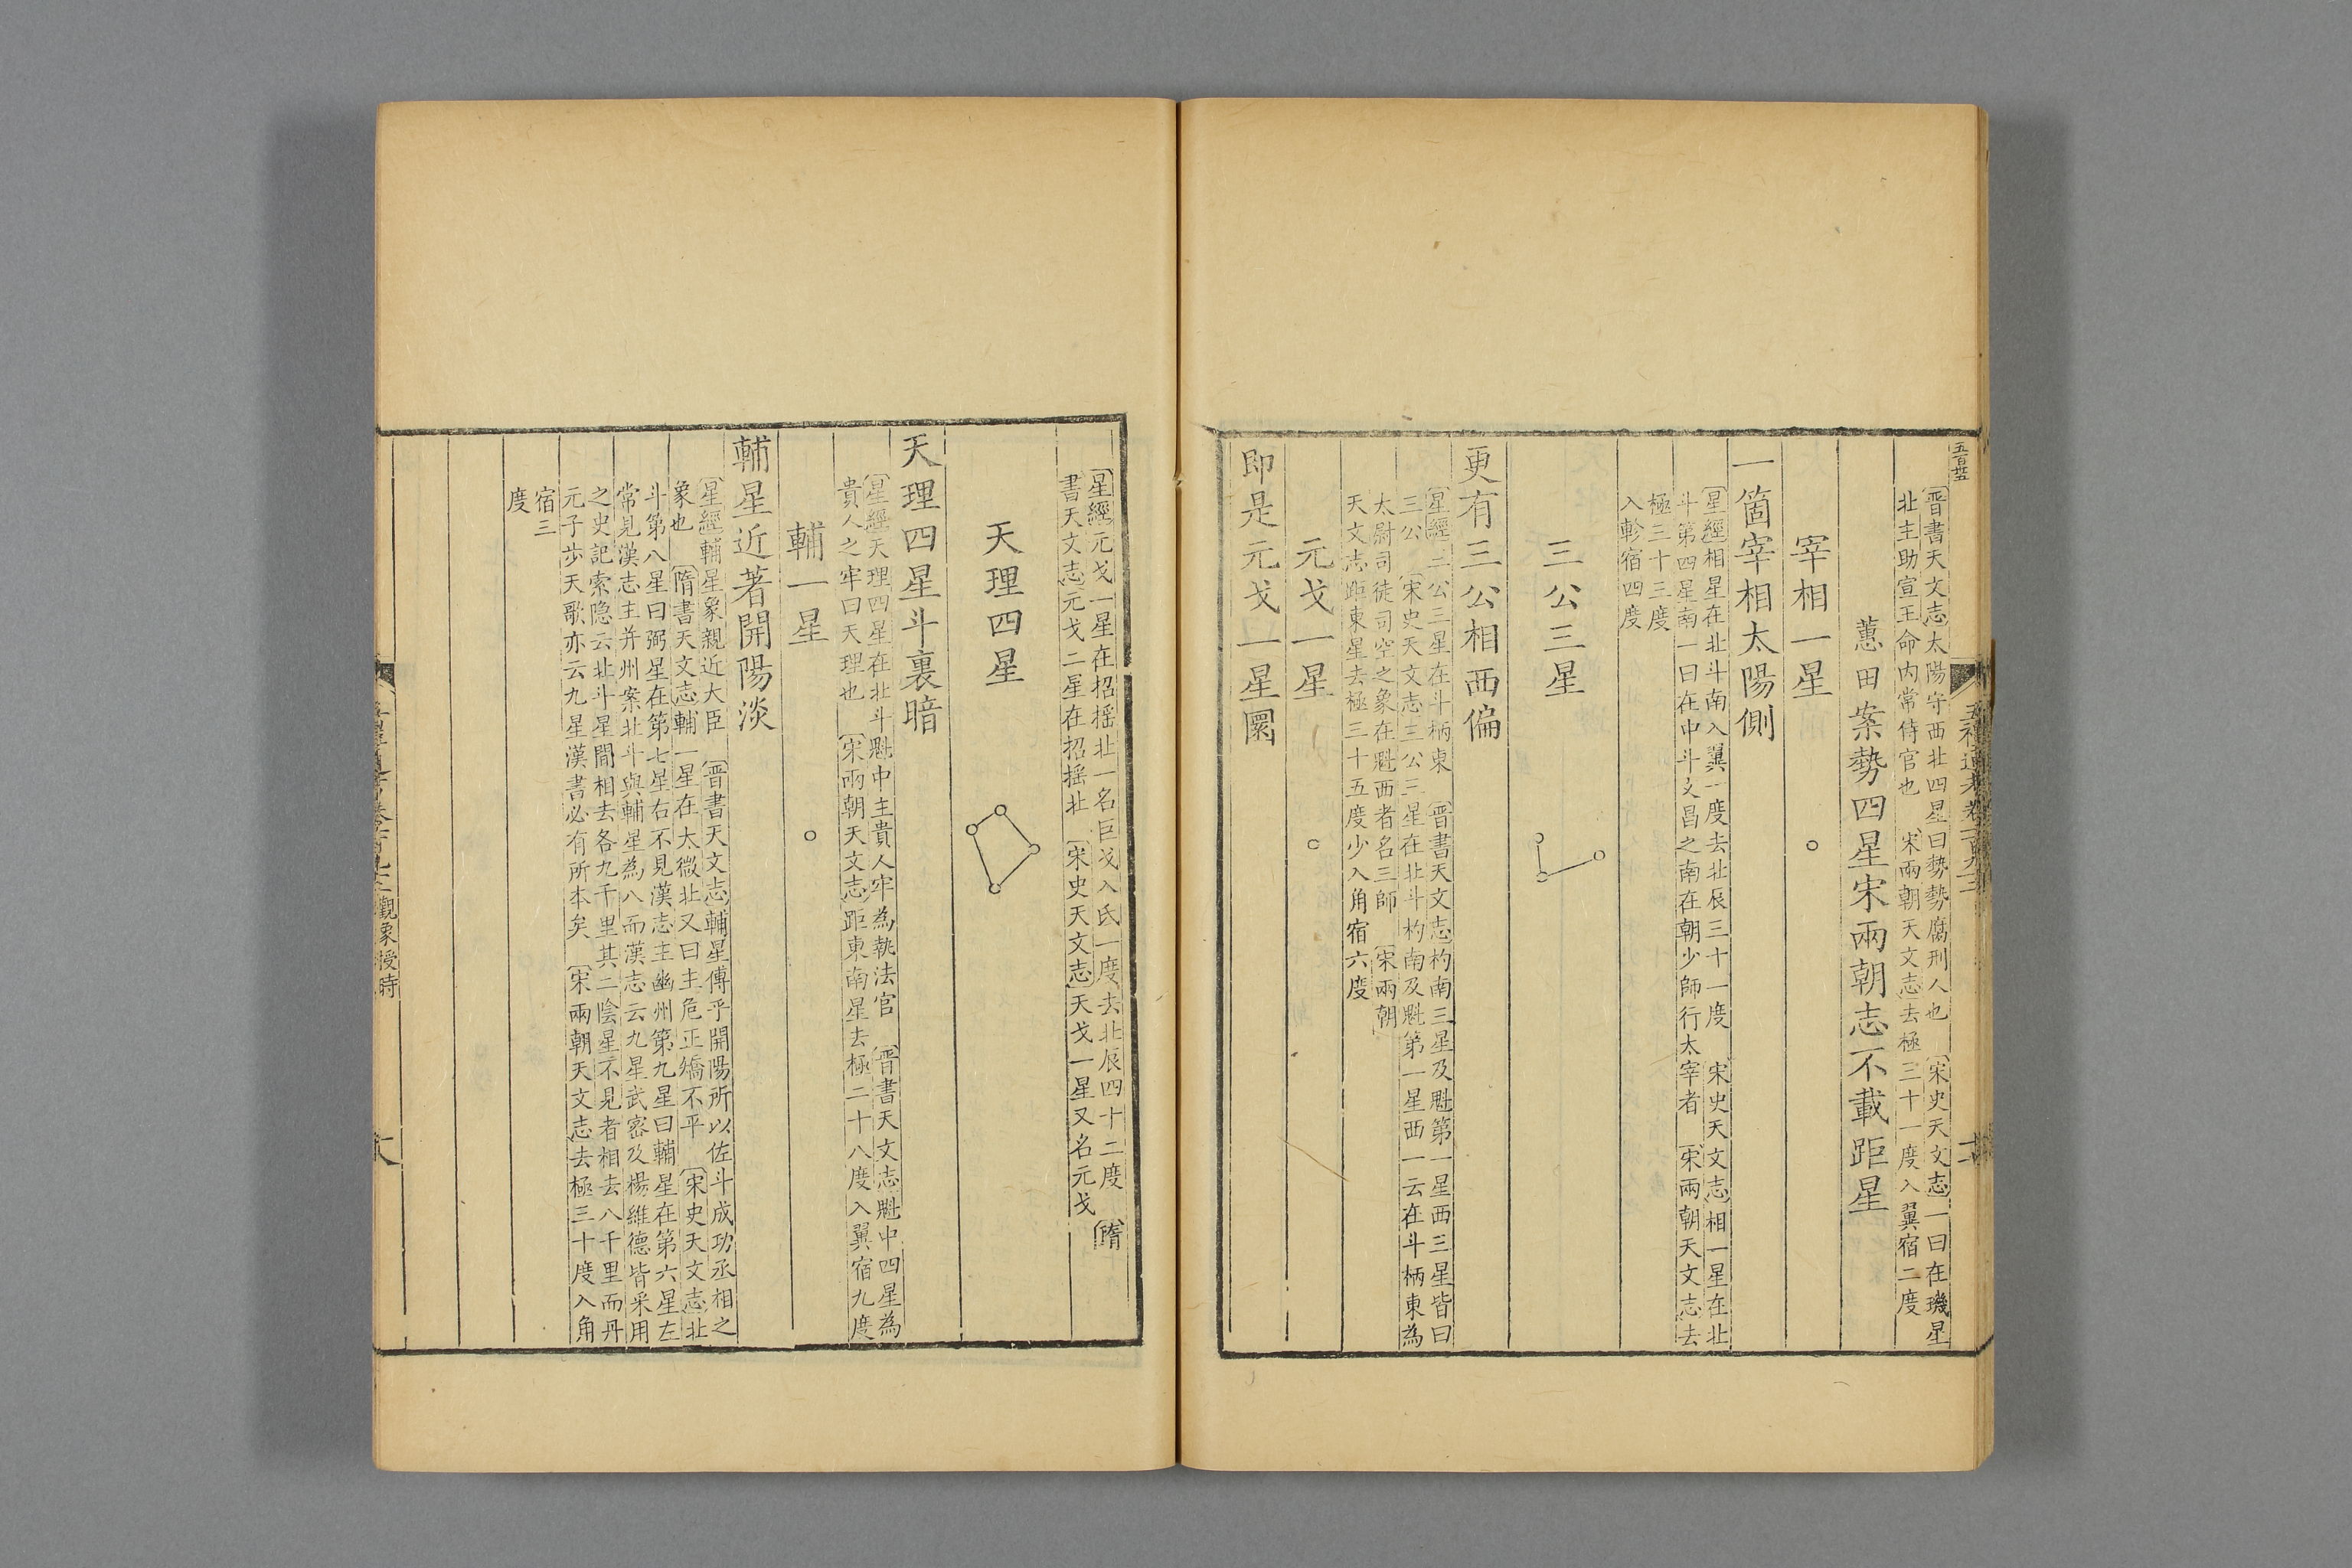 五百廿五
晋書天文志太陽守西北四星曰勢勢腐刑人也 宋史天文志一曰在璣星
北主助宣王命内常侍官也 宋兩朝天文志去極三十一度入翼宿二度
蕙田案勢四星宋兩朝志不載距星
宰相一星
一箇宰相太陽側
星經相星在北斗南入翼一度去北辰三十一度 宋史天文志相一星在北
斗第四星南一曰在中斗文昌之南在朝少師行太宰者 宋兩朝天文志去
極三十三度
入軫宿四度
三公三星
更有三公相西偏
星經三公三星在斗柄東 晋書天文志杓南三星及魁第一星西三星皆曰
三公 宋史天文志三公三星在北斗杓南及魁第一星西一云在斗柄東為
太尉司徒司空之象在魁西者名三師 宋兩朝
天文志距東星去極三十五度少入角宿六度
元戈一星
即是元戈一星圜
星經元戈一星在招摇北一名巨戈入氐一度去北辰四十二度 隋
書天文志元戈二星在招摇北 宋史天文志天戈一星又名元戈
天理四星
天理四星斗裏暗
星經天理四星在北斗魁中主貴人牢為執法官 晋書天文志魁中四星為
貴人之牢曰天理也 宋兩朝天文志距東南星去極二十八度入翼宿九度
輔一星
輔星近著開陽淡
星經輔星象親近大臣 晋書天文志輔星傅乎開陽所以佐斗成功丞相之
象也 隋書天文志輔一星在太微北又曰主危正矯不平 宋史天文志北
斗第八星曰弼星在第七星右不見漢志主幽州第九星曰輔星在第六星左
常見漢志主并州案北斗與輔星為八而漢志云九星武密及楊維德皆采用
之史記索隐云北斗星間相去各九千里其二陰星不見者相去八千里而丹
元子步天歌亦云九星漢書必有所本矣 宋兩朝天文志去極三十度入角
宿三
度
觀象授時